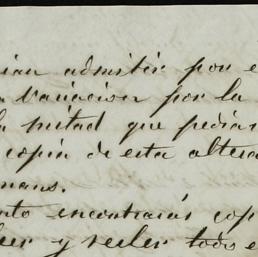 ian admitir por e
a variacion por la
la mitad que pedia
copia de esta altera
mans.
nto encontrarás cop
leer y reeler todo e